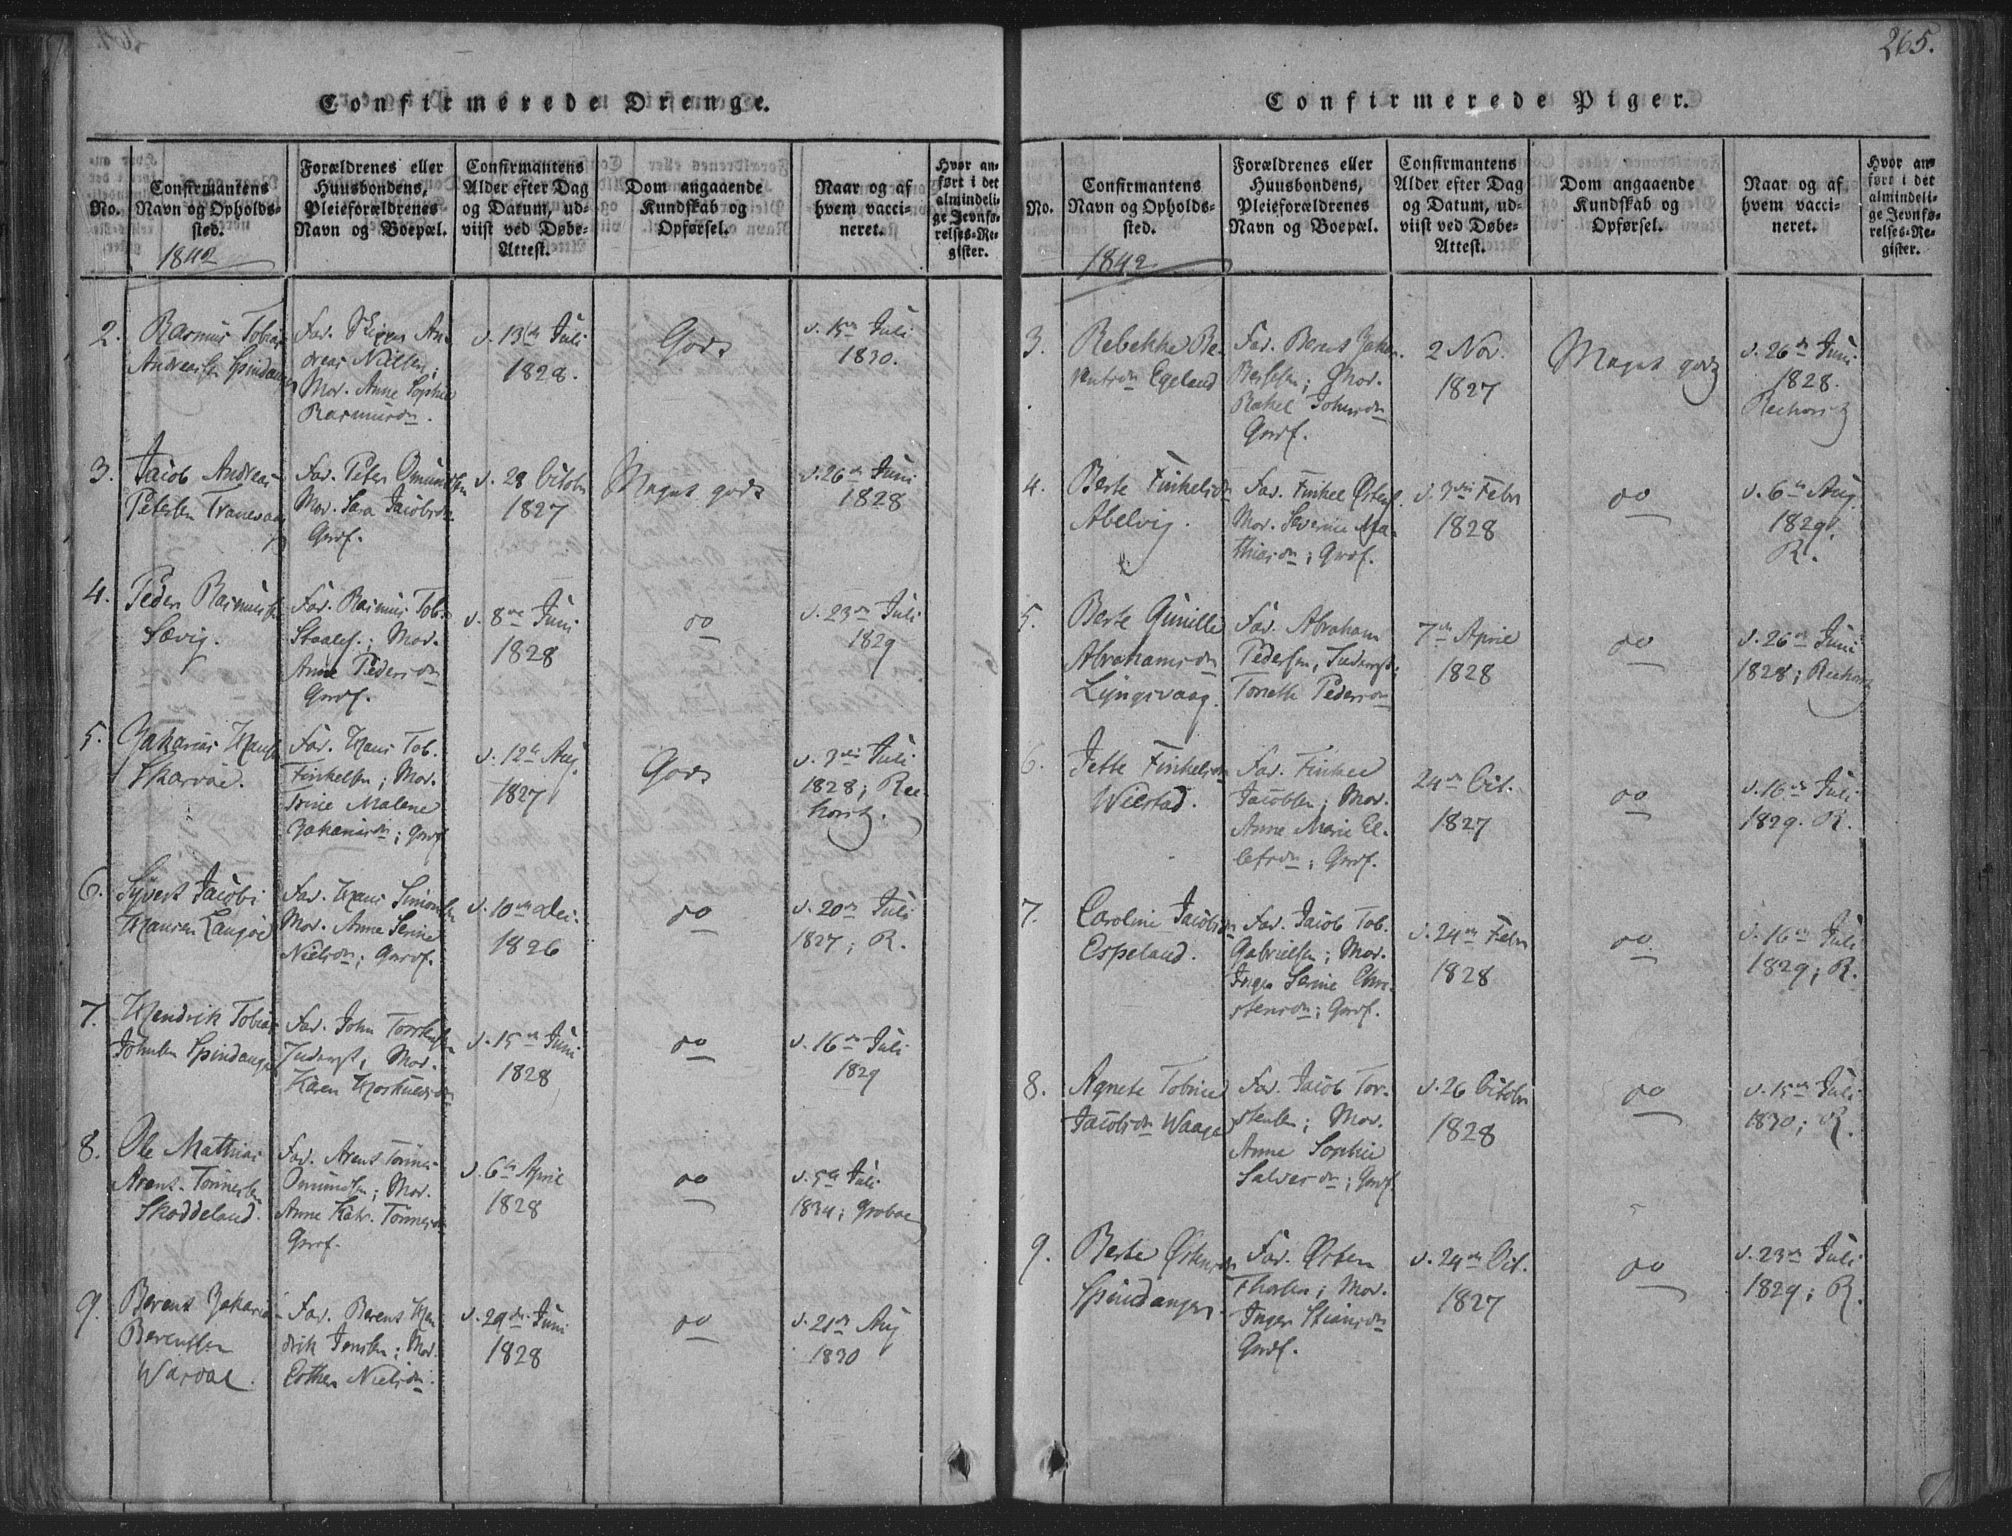 265.
Confirmerede Drenge.
No.
Confirmantens
Navn og Opholds-
sted.
1842
Forældrenes eller
Huusbondens,
Pleieforældrenes
Navn og Boepæl.
Confirmantens
Alder efter Dag
og Datum, ud-
viist ved Døbe-
Attest.
Dom angaaende
Kundskab og
Opførsel.
Naar og af
hvem vacci-
neret.
Hvor an-
ført i det
almindeli-
ge Jevnfø-
relses-Re-
gister.
2.
Rasmus Tobias
Andreassen Spindanger
Fad. Skipper An-
dreas Nilsen;
Mod. Anne Sophie
Rasmusdn.
d. 13de Juli
1828.
Gods
d. 15de Juli
1830.
3.
Jacob Andreas
Petersen Tranevaag
Fad. Peter Omundsen
Mod. Sara Jacobsdn
Grdf.
d. 28 Octobr
1827
Maget gods
d. 26de Juni
1828
4.
Peder Rasmussen
Sævig.
Fad. Rasmus Tob.
Staalef.; Mod.
Anne Pedersdn
Grdf.
d. 8de Juni
1828
do
d. 23de Juli
1829
5.
Zakarias Hansen
Skarvöe.
Fad. Hans Tob.
Finkelsen; Mod.
Trine Malene
Zakariasdn; Grdf
d. 12te Aug.
1827
Gods
d. 3die Juli
1828; Ree-
horst.
6.
Syvert Jacobi
Hansen Langöe
Fad. Hans Simonsen
Mod. Anne Serine
Nielsdn; Grdf.
d. 10de Dec.
1826
do
d. 20de Juli
1827; R.
7.
Hendrik Tobias
Johnsen Spindanger
Fad. John Torstensen
Inderst; Mod.
Karen Torkildsdn
d. 15de Juni
1828
do
d. 16de Juli
1829
8.
Ole Mathias
Arent Tönnesen
Skoddeland.
Fad. Arent Tönnes
Omundsen; Mod.
Anne Katr. Tönnesdn
Grdf.
d. 6te April
1828
do
d. 5te Juli
1834; Groboe
9.
Berent Zakarias
Berentsen
Wardal.
Fad. Berent Hen-
drik Jensen; Mod.
Esther Nielsdn.
d. 29de Juni
1828
do
d. 21de Aug
1830
Confirmerede Piger.
No.
Confirmantens
Navn og Opholds-
sted.
1842
Forældrenes eller
Huusbondens,
Pleieforældrenes
Navn og Boepæl.
Confirmantens
Alder efter Dag
og Datum, ud-
viist ved Døbe-
Attest.
Dom angaaende
Kundskab og
Opførsel.
Naar og af
hvem vacci-
neret.
Hvor an-
ført i det
almindeli-
ge Jevnfø-
relses-Re-
gister.
3.
Rebekke Be-
rentsdn Egeland
Fad. Berent Zaka.
Berntsen; Mod.
Rakel Johnsdn
Grdf.
2 Nov.
1827
Maget gods
d. 26de Juni
1828.
Reehorst
4.
Berte Finkelsdn
Abelvig.
Fad. Finkel Östenf.
Mod. Severine Ma-
thiasdn; Grdf.
d. 3die Febr
1828
do
d. 6te Aug.
1829.
R.
5.
Berte Gunille
Abrahamsdn
Lyngsvaag.
Fad. Abraham
Pedersen, Inderst;
Torette Pedersdn
7de April
1828
do
d. 26de Juni
1828; Reehorst
6.
Jette Finkelsdn
Wielstad.
Fad. Finkel
Jacobsen; Mod.
Anne Marie El-
lefsdn; Grdf.
24de Oct.
1827
do
d. 16de Juli
1829. R.
7.
Caroline Jacobsdn
Espeland.
Fad. Jacob Tob.
Gabrielsen; Mod.
Inger Serine Chri-
stensdn; Grdf.
d. 24de Febr
1828
do
d. 16de Juli
1829; R.
8.
Agnete Tobine
Jacobsdn Waage
Fad. Jacob Tor-
stensen; Mod.
Anne Sophie
Salvesdn; Grdf.
d. 26 Octobr
1828
do
d. 15de Juli
1830; R.
9.
Berte Östensdn
Spindanger.
Fad. Östen
Thorsen; Mod.
Inger Stiansdn
Grdf.
d. 24de Oct.
1827
do
d. 23de Juli
1829; R.